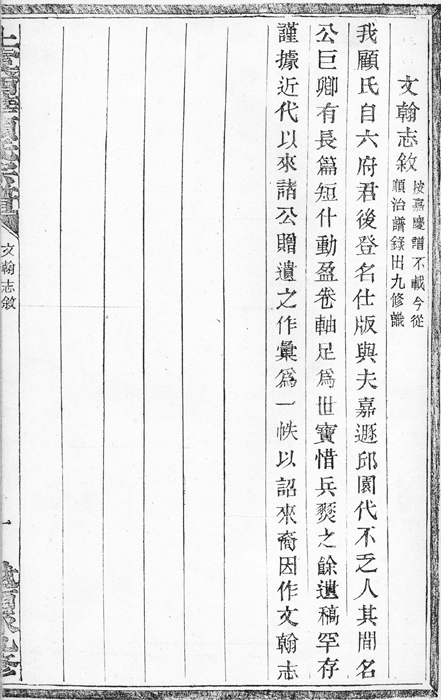 文翰志敘
按嘉慶譜不載今從
順治譜錄出九修識
我顧氏自六府君後登名仕版與夫嘉遯邱園代不乏人其間名
公巨卿有長篇短什動盈卷軸足爲世寶惜兵燹之餘遺稿罕存
謹據近代以來諸公贈遺之作彙爲一帙以詔來裔因作文翰志
文翰志敘
一